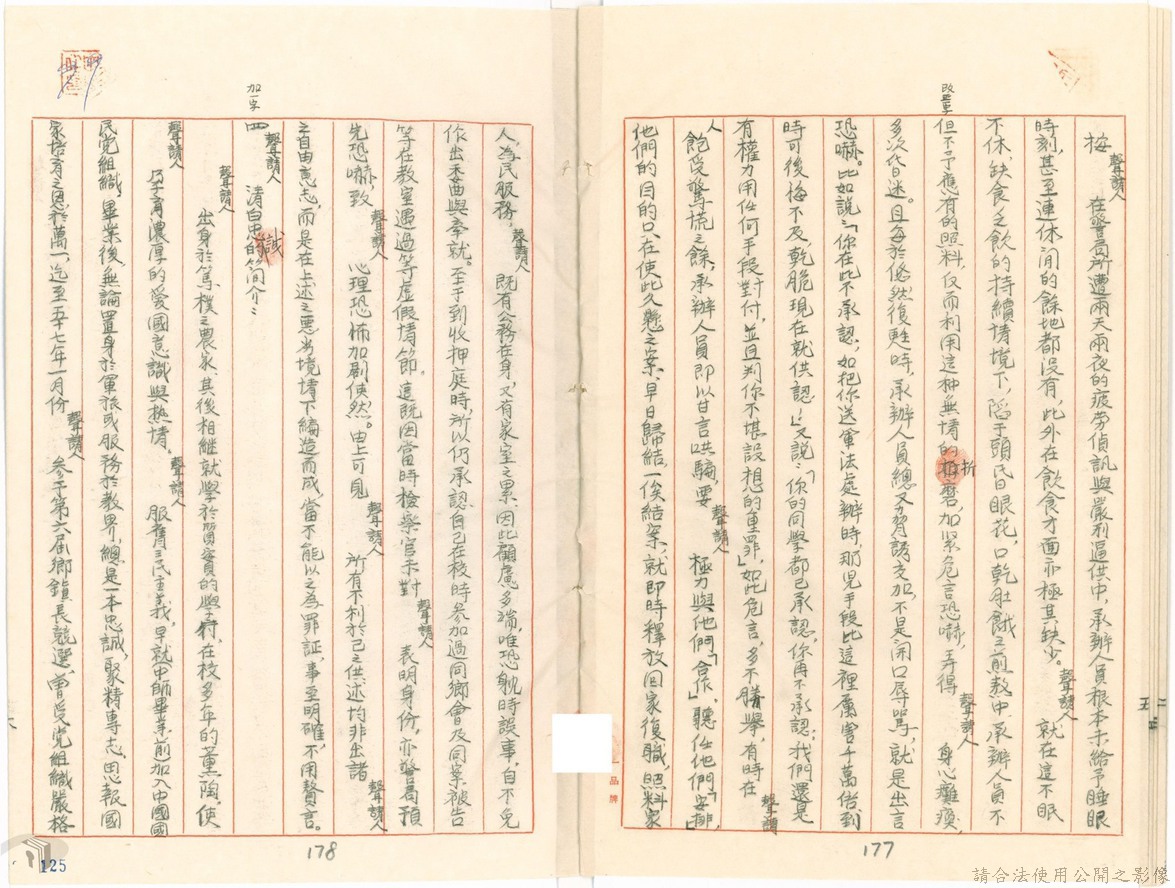 改壹字
梅聲請人在警局所遭兩天兩夜的疲勞偵訊與嚴刑逼供中,承辦人員根本未給予睡眠
時刻,甚至連休閒的餘地都沒有,此外在飲食方面亦極其缺少。聲請人就在這不眠
不休,缺食乏飲的持續情境下,陷于頭昏眼花,口乾肚餓之煎熬中,承辦人員不
但不予應有的照料,反而利用這种無情的折磨,加緊危言恐嚇,弄得聲請人身心癱瘓,
多次昏迷。且每於悠然復甦時,承辦人員總又脅誘交加,不是開口辱罵,就是出言
恐嚇。比如說:「你在此不承認,如把你送軍法處辦時,那兒手段比這裡厲害千萬倍,到
時可後悔不及,乾脆現在就供認!」又說:「你的同學都已承認,你再不承認,我們還是
有權力用任何手段對付,並且判你不堪設想的重罪」,如此危言,多不勝舉,有時在聲請
人飽受驚慌之餘,承辦人員即以甘言哄騙,要聲請人極力與他們「合作」,聽任他們「安排」,
他們的目的只在使此久懸之案,早日歸結,一俟結案,就即時釋放回家復職,照料家
177
品牌
人,為民服務。聲請人既有公務在身,又有家室之累,因此顧慮多端,唯恐躭時誤事,自不免
作出委曲與奉就。至于到收押庭時,所以仍承認自己在校時參加過同鄉會及同案被告
等在教室遇過等虛假情節。這既因當時檢察官未對聲請人表明身份,亦警局預
先恐嚇,致聲請人心理恐怖加剧使然。由上可見聲請人所有不利於己之供述均非出諸聲請人
之自由意志,而是在上述之惡劣境情下編造而成,當不能以之為罪証,事至明確,不用贅言。
加一字
四聲請人清白忠誠的簡介:
聲請人出身於篤樸之農家,其後相繼就學於質實的學府,在校多年的薰陶,使
聲請人孕育濃厚的愛國意識與热情。聲請人服膺三民主義,早就中師畢業前加入中國國
民党組織,畢業後無論置身於軍旅或服務於教界,總是一本忠誠,聚精專志,思報國
家培育之恩於萬一,迄至五十七年一月份聲請人參于第六屆鄉鎮長競選,曾受党組織嚴格
178
125
請合法使用公開之影像